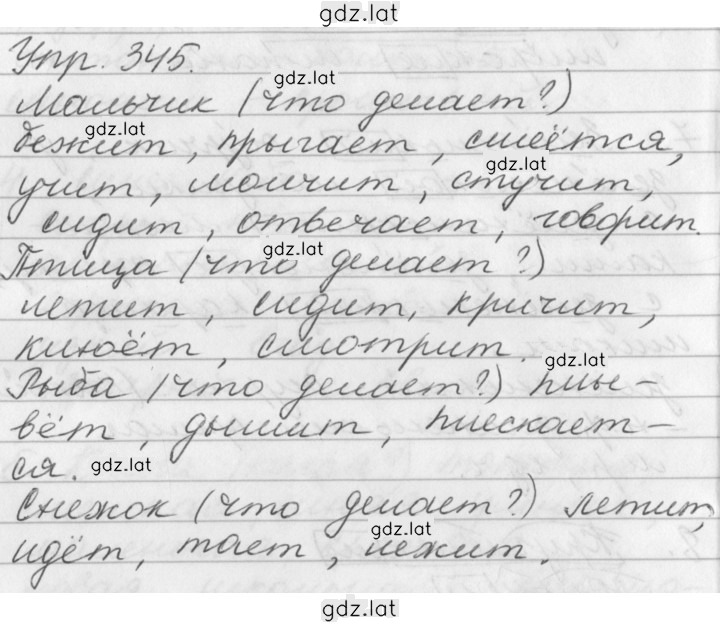 gdz.lat
Упр. 345.
gdz.lat
Мальчик (что делает?)
gdz.lat
бежит, прыгает, смеётся,
gdz.lat
учит, молчит, стучит,
сидит, отвечает, говорит.
gdz.lat
Птица (что делает?)
летит, сидит, кричит,
клюёт, смотрит.
gdz.lat
Рыба (что делает?) плы-
вёт, дышит, плескает-
ся. gdz.lat
Снежок (что делает?) летит,
gdz.lat
идёт, тает, лежит.
gdz.lat